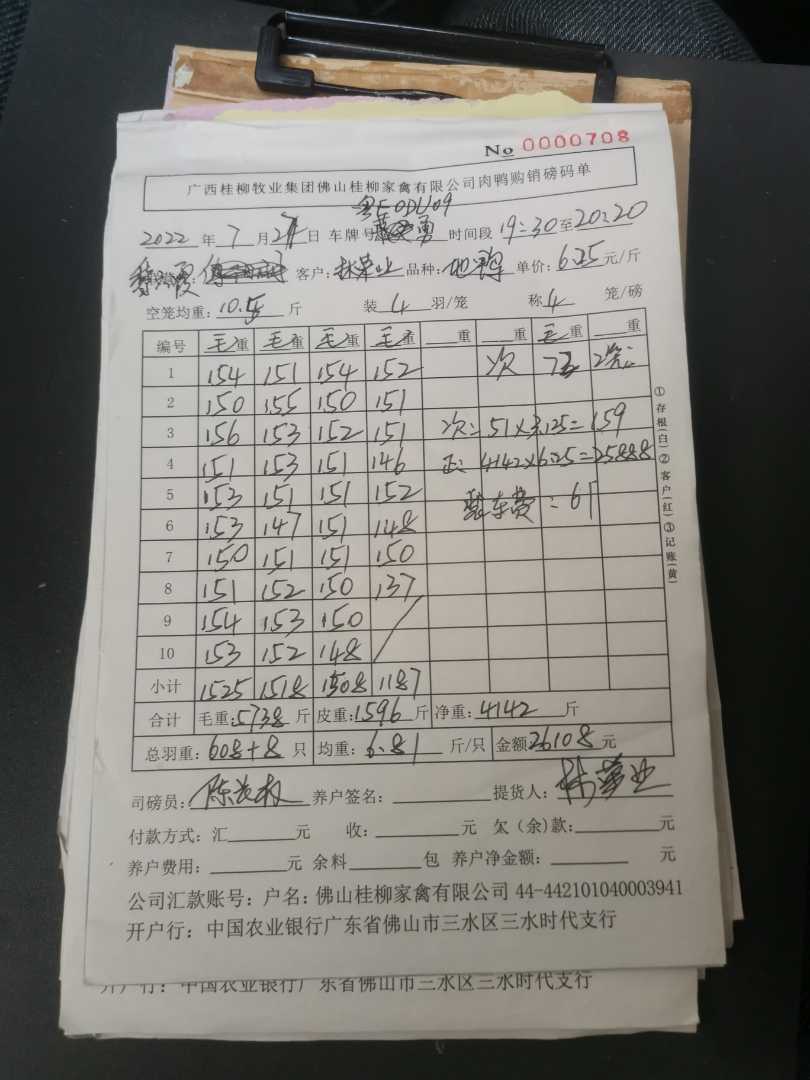 No 0000708
广西桂柳牧业集团佛山桂柳家禽有限公司肉鸭购销磅码单
粤E0DU09
2022 年 7 月 27 日 车牌号 勇 时间段 19:30至20:20
客户: 林荣业 品种: 单价: 6.25 元/斤
空笼均重: 10.5 斤 装 4 羽/笼 称 4 笼/磅
编号 毛重 毛重 毛重 毛重 重 重 毛重 重
1 154 151 154 152 次 2笼
2 150 155 150 151
3 156 153 152 151 次: 51×3.125=159
4 151 153 151 146 正: 4142×6.25=25888
5 153 151 151 152 装车费: 61
6 153 147 151 148
7 150 151 151 150
8 151 152 150 137
9 154 153 150 /
10 153 152 148
小计 1525 1518 1508 1187
合计 毛重:5738 斤 皮重:1596 斤 净重:4142 斤
总羽重: 608+8 只 均重: 6.81 斤/只 金额26108元
司磅员: 养户签名: 提货人: 林荣业
付款方式: 汇 元 收: 元 欠(余)款: 元
养户费用: 元 余料 包 养户净金额: 元
公司汇款账号: 户名: 佛山桂柳家禽有限公司 44-442101040003941
开户行: 中国农业银行广东省佛山市三水区三水时代支行
①存根(白)②客户(红)③记账(黄)
开户行: 中国农业银行广东省佛山市三水区三水时代支行